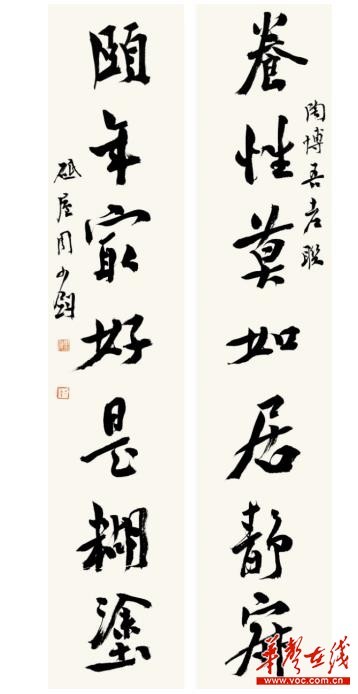 養性莫如居靜寂
陶博吾老聯
頤年冣好是糊塗
砥屋周少劍
华声在线
www.voc.com.cn